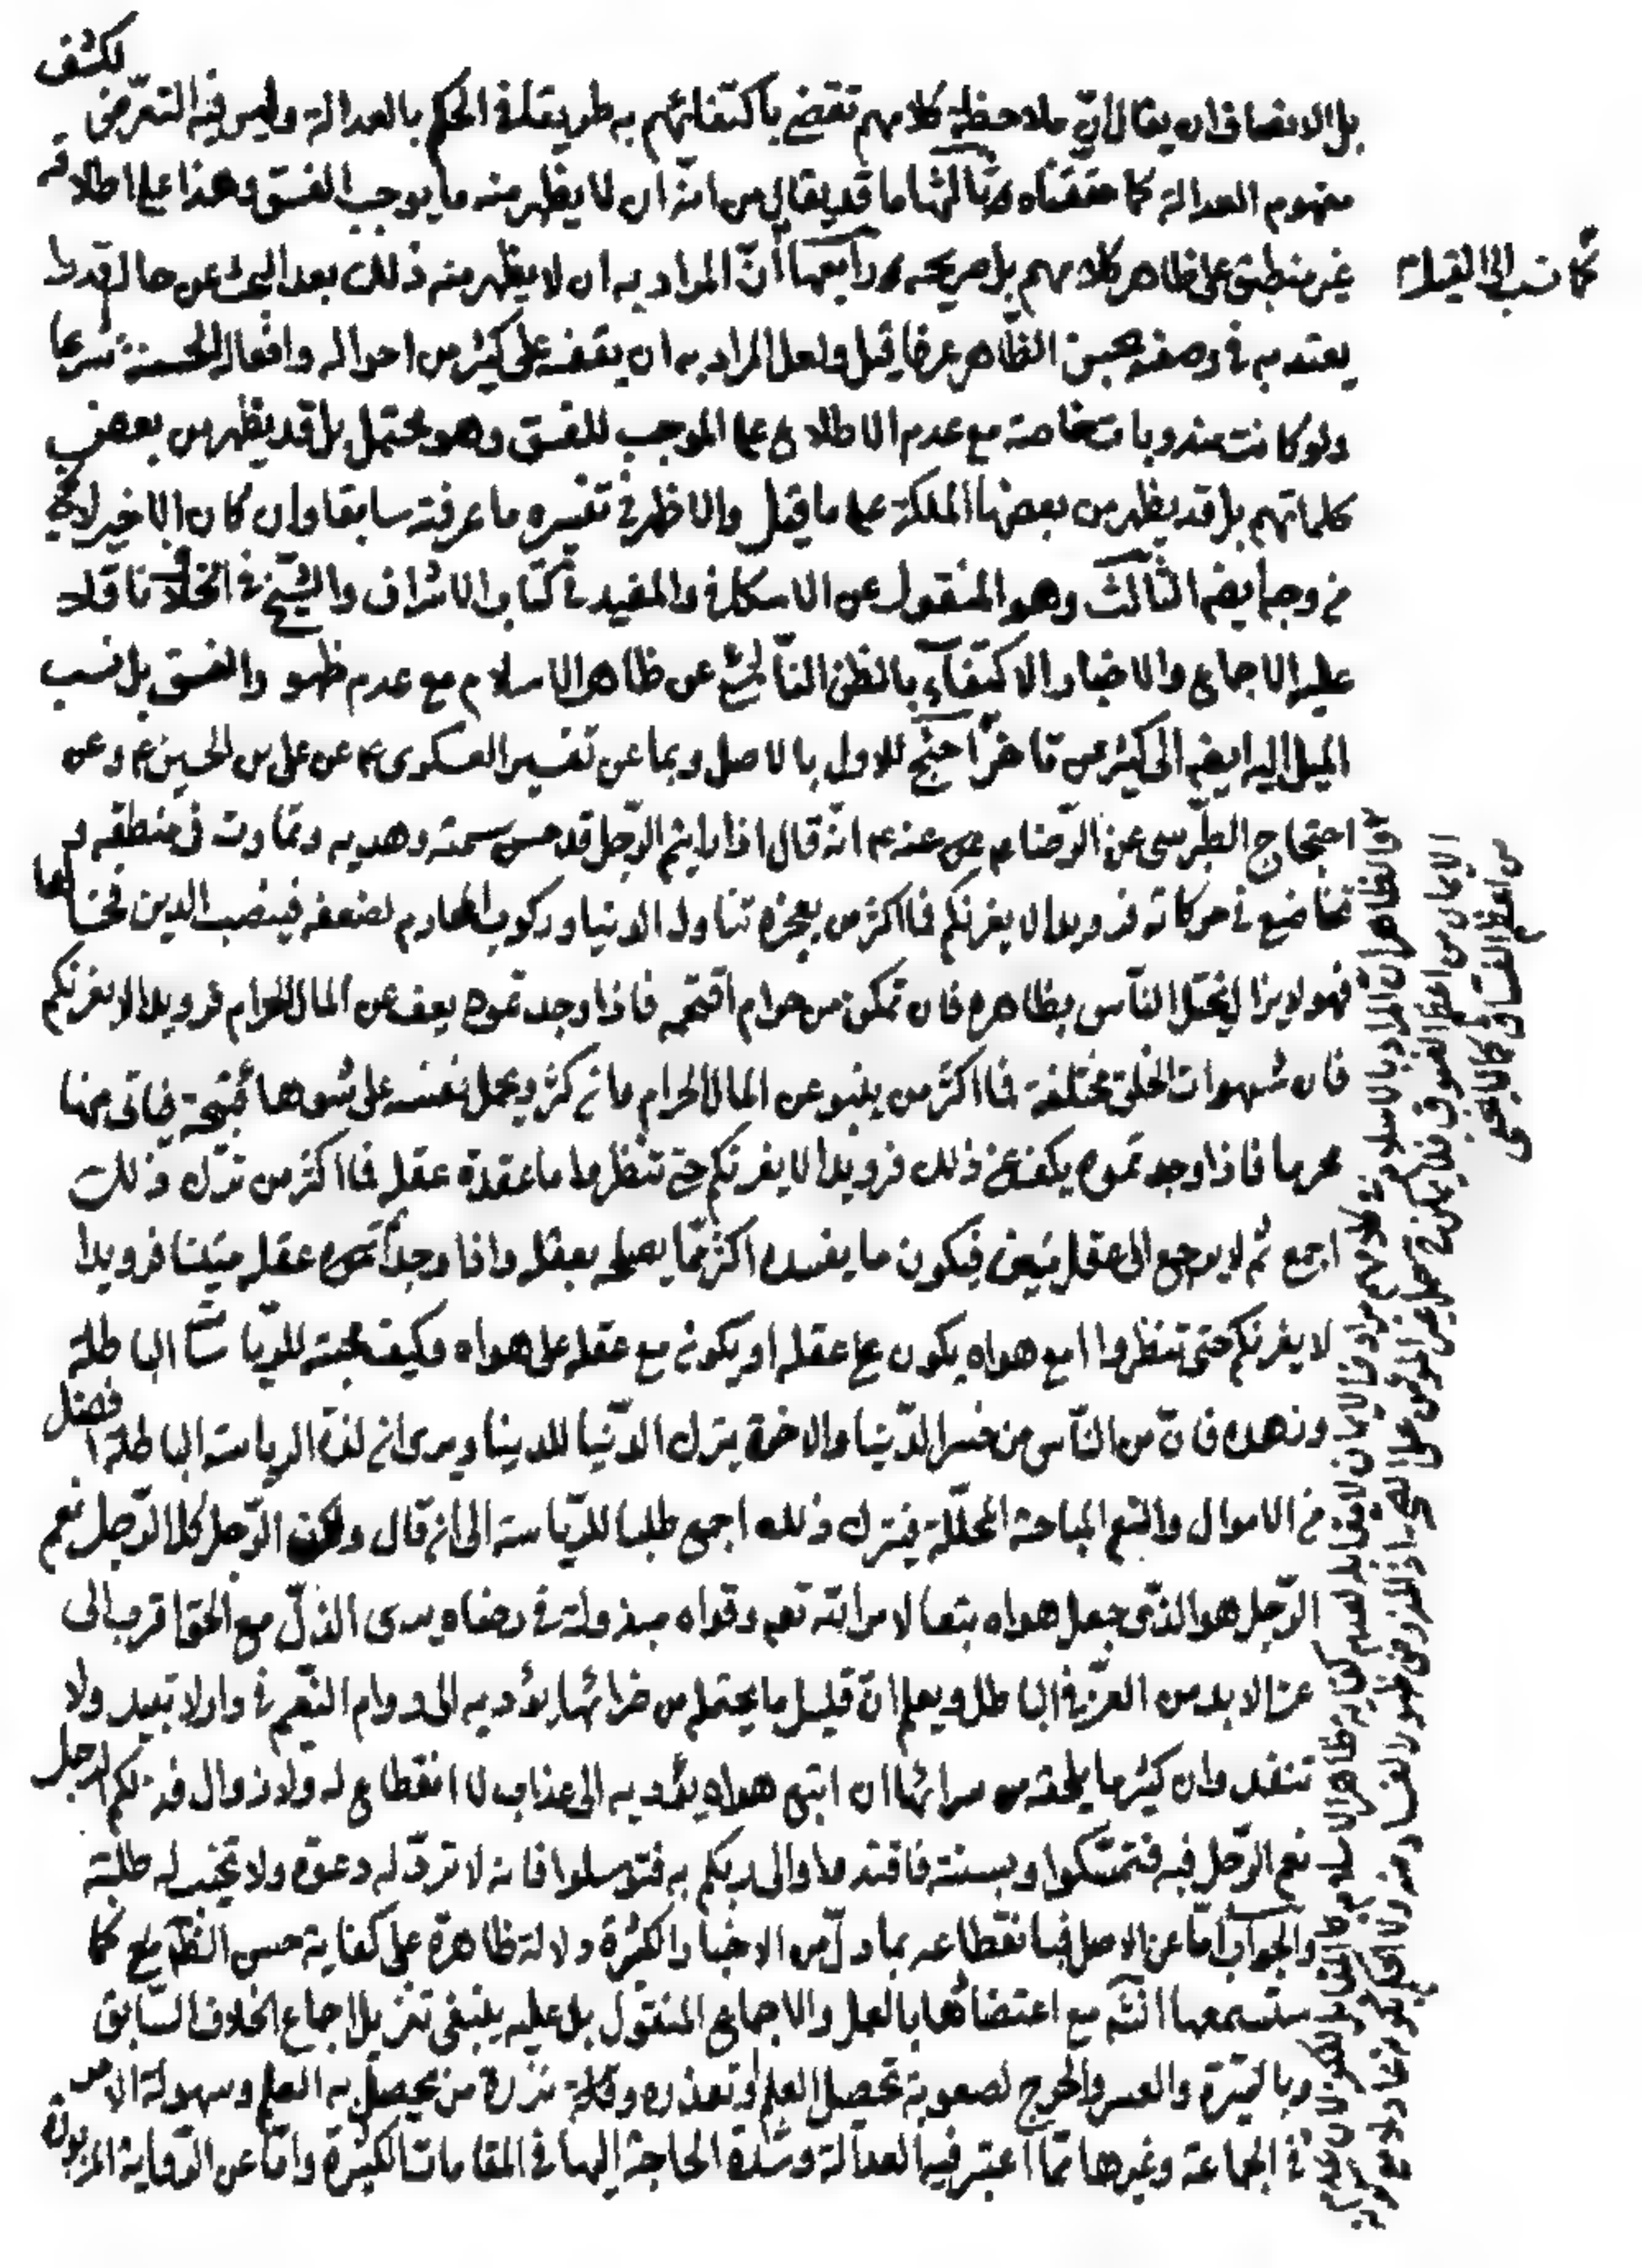 بل الانصاف ان يقال انّ ملاحظة كلامهم تقضي باكتفائهم به طريقا في الحكم بالعدالة وليس فيه التعرّض لكشف
مفهوم العدالة كما حققناه ثالثها ما قد يقال من انّه ان لا يظهر منه ما يوجب الفسق وهذا على اطلاقه
غير منطبق على ظاهر كلامهم بل صريحه ورابعها أنّ المراد به ان لا يظهر منه ذلك بعد البحث عن حاله قدرا
كما نسب الى القيل
يعتد به في وصفه بحسن الظّاهر عرفا قيل ولعل المراد به ان يقف على كثير من احواله وافعاله الحسنة شرعا
ولو كانت مندوبات خاصة مع عدم الاطلاع على الموجب للفسق وهو محتمل بل قد يظهر من بعض
كلماتهم بل قد يظهر من بعضها الملكة على ما قيل والاظهر في تفسيره ما عرفته سابقا وان كان الاخير لا يخ
من وجه ايضا الثالث وهو المنقول عن الاسكافي والمفيد في كتاب الاشراف والشيخ في الخلاف ناقلا
عليه الاجماع والاخبار الاكتفآء بالظن النّاشئ عن ظاهر الاسلام مع عدم ظهور الفسق بل نسب
الميل اليه ايضا الى كثير من تاخر احتج للاول بالاصل وبما عن تفسير العسكرى ع عن على بن الحسين ع وعن
احتجاج الطبرسى عن الرّضا ع عنه ع انّه قال اذا رايتم الرّجل قد حسن سمته وهديه وتماوت في منطقه و
تخاضع في حركاته فرويدا لا يغرنكم فما اكثر من يعجزه تناول الدنيا وركوب المحارم لضعفه فينصب الدين فخا لها
فهو لا يزال يختل النّاس بظاهره فان تمكن من حرام اقتحمه فاذا وجدتموه يعف عن المال الحرام فرويدا لا يغرنكم
فان شهوات الخلق مختلفة فما اكثر من ينبو عن المال الحرام وان كثر ويحمل نفسه على شوهاء قبيحة فياتى منها
محرما فاذا وجدتموه يكف عن ذلك فرويدا لا يغرنكم حتى تنظروا ما عقدة عقله فما اكثر من ترك ذلك
اجمع ثم لا يرجع الى عقل متين فيكون ما يفسده اكثر ممّا يصلحه بعقله واذا وجدتموه عقله متينا فرويدا
لا يغرنكم حتى تنظروا امع هواه يكون على عقله او يكون مع عقله على هواه وكيف محبته للرياسات الباطلة
وزهده فانّ من النّاس من خسر الدّنيا والاخرة يترك الدّنيا للدنيا ويرى ان لذة الرياسة الباطلة افضل
من الاموال والنعم المباحة المحلّلة فيترك ذلك اجمع طلبا للرّياسة الى ان قال ولكن الرّجل كل الرّجل نعم
الرّجل هو الذّى جعل هواه تبعا لامر الله تعم وقواه مبذولة في رضاه يرى الذلّ مع الحق اقرب الى
عز الابد من العزّ في الباطل ويعلم انّ قليل ما يحتمله من ضرائها يؤديه الى دوام النّعيم في دار لا تبيد ولا
تنفد وان كثير ما يلحقه من سرائها ان اتبع هواه يؤديه الى عذاب لا انقطاع له ولا زوال فذلكم الرجل
نعم الرّجل فبه فتمسّكوا وبسنته فاقتدوا والى ربكم به فتوسلوا فانه لا تردّ له دعوة ولا تخيب له طلبة
والجواب امّا عن الاصل فبانقطاعه بما دلّ من الاخبار الكثيرة دلالة ظاهرة على كفاية حسن الظّاهر كما
ستسمعها انشآء مع اعتضادها بالعمل والاجماع المنقول بل عليه ينبغى تنزيل اجماع الخلاف السّابق
وبالسّيرة والعسر والحرج لصعوبة تحصيل العلم او تعذره وقلة ندرة من يحصل به العلم وسهولة الامر
في الجماعة وغيرها ممّا اعتبر فيها لعدالة وشدّة الحاجة اليها في المقامات الكثيرة وامّا عن الرّواية المزبورة